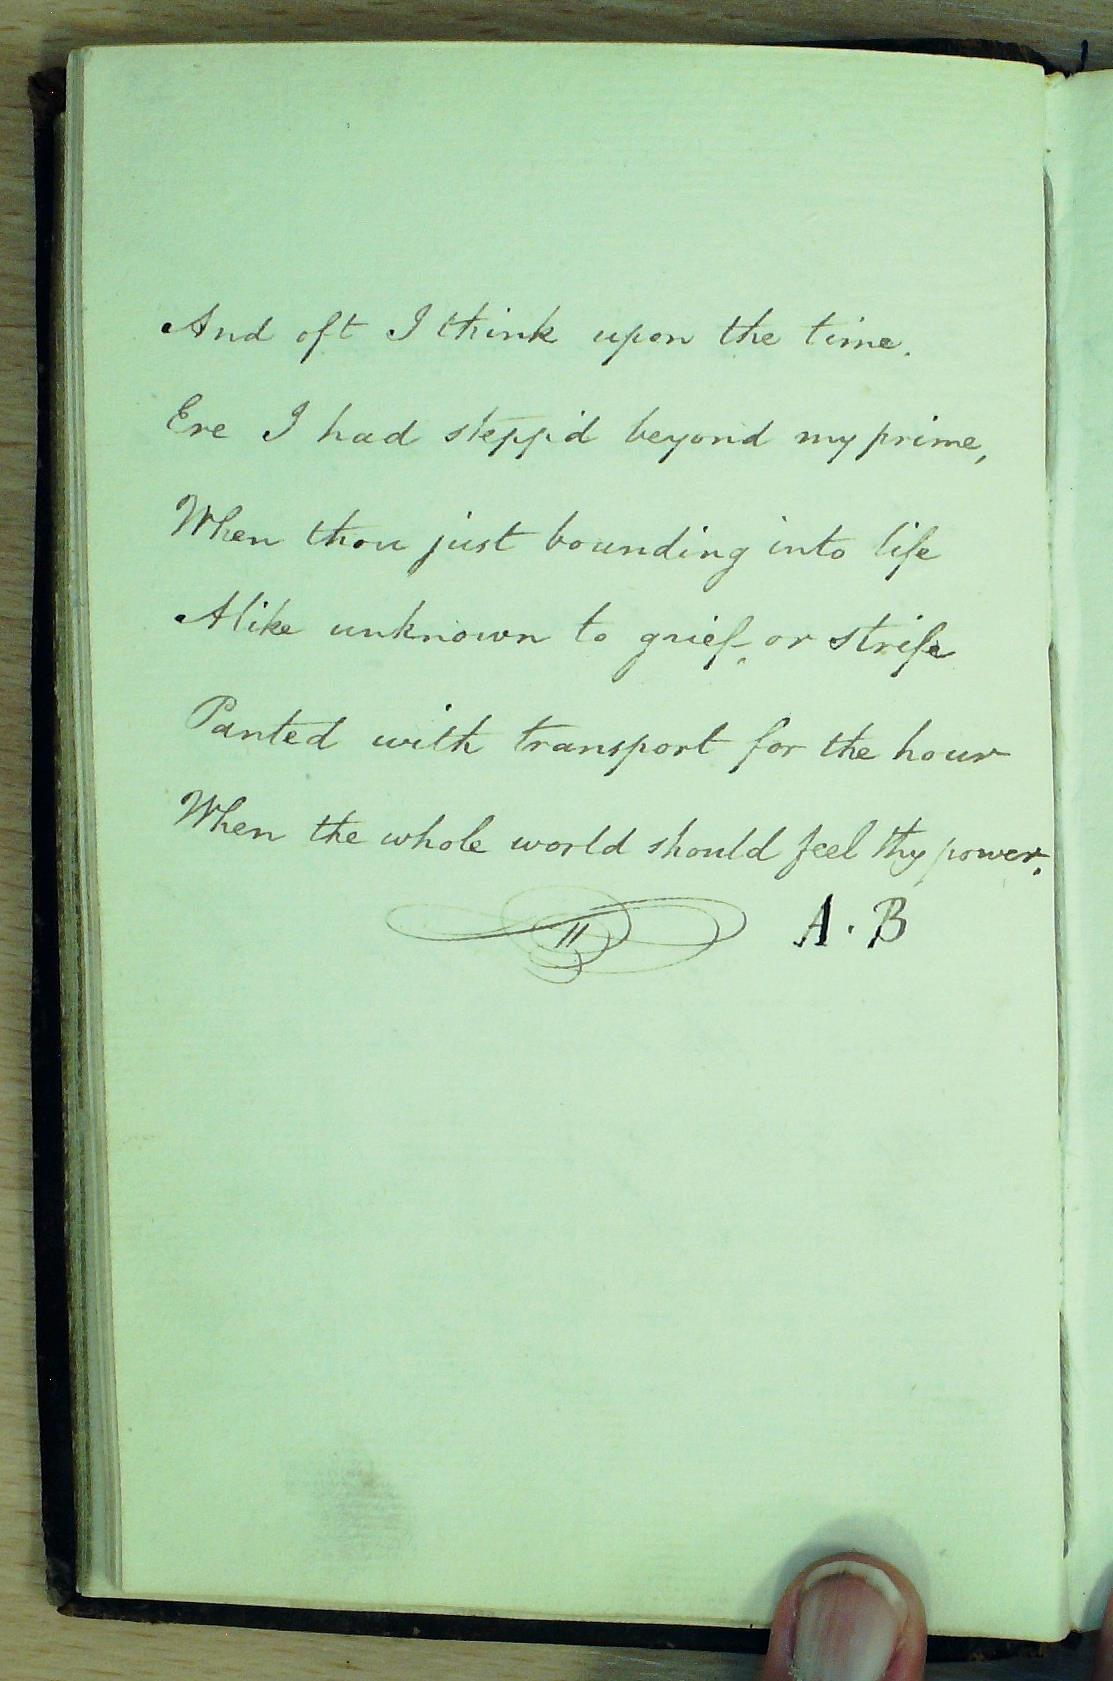 And oft I think upon the time.
Ere I had stepp'd beyond my prime,
When thou just bounding into life
Alike unknown to grief, or strife
Panted with transport for the hour
When the whole world should feel thy power.
A. B